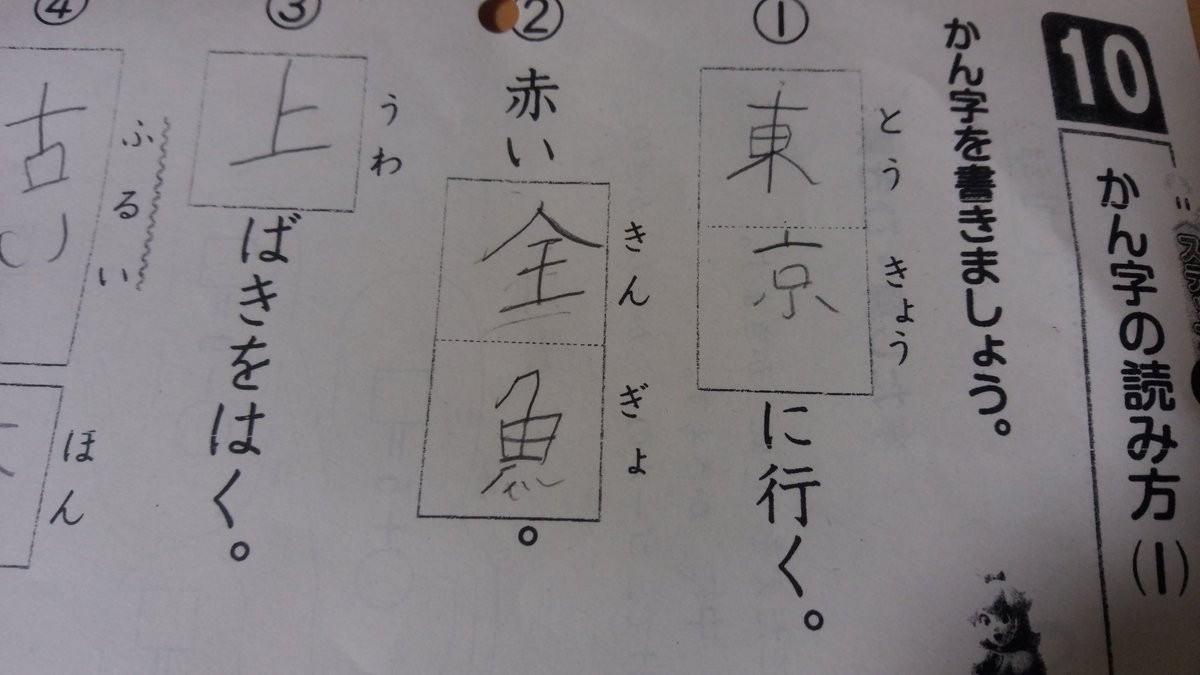 10
かん字の読み方(1)
かん字を書きましょう。
①
とうきょう
東京に行く。
②
きんぎょ
赤い全魚。
③
うわ
上ばきをはく。
④
ふるい
古い
ほん